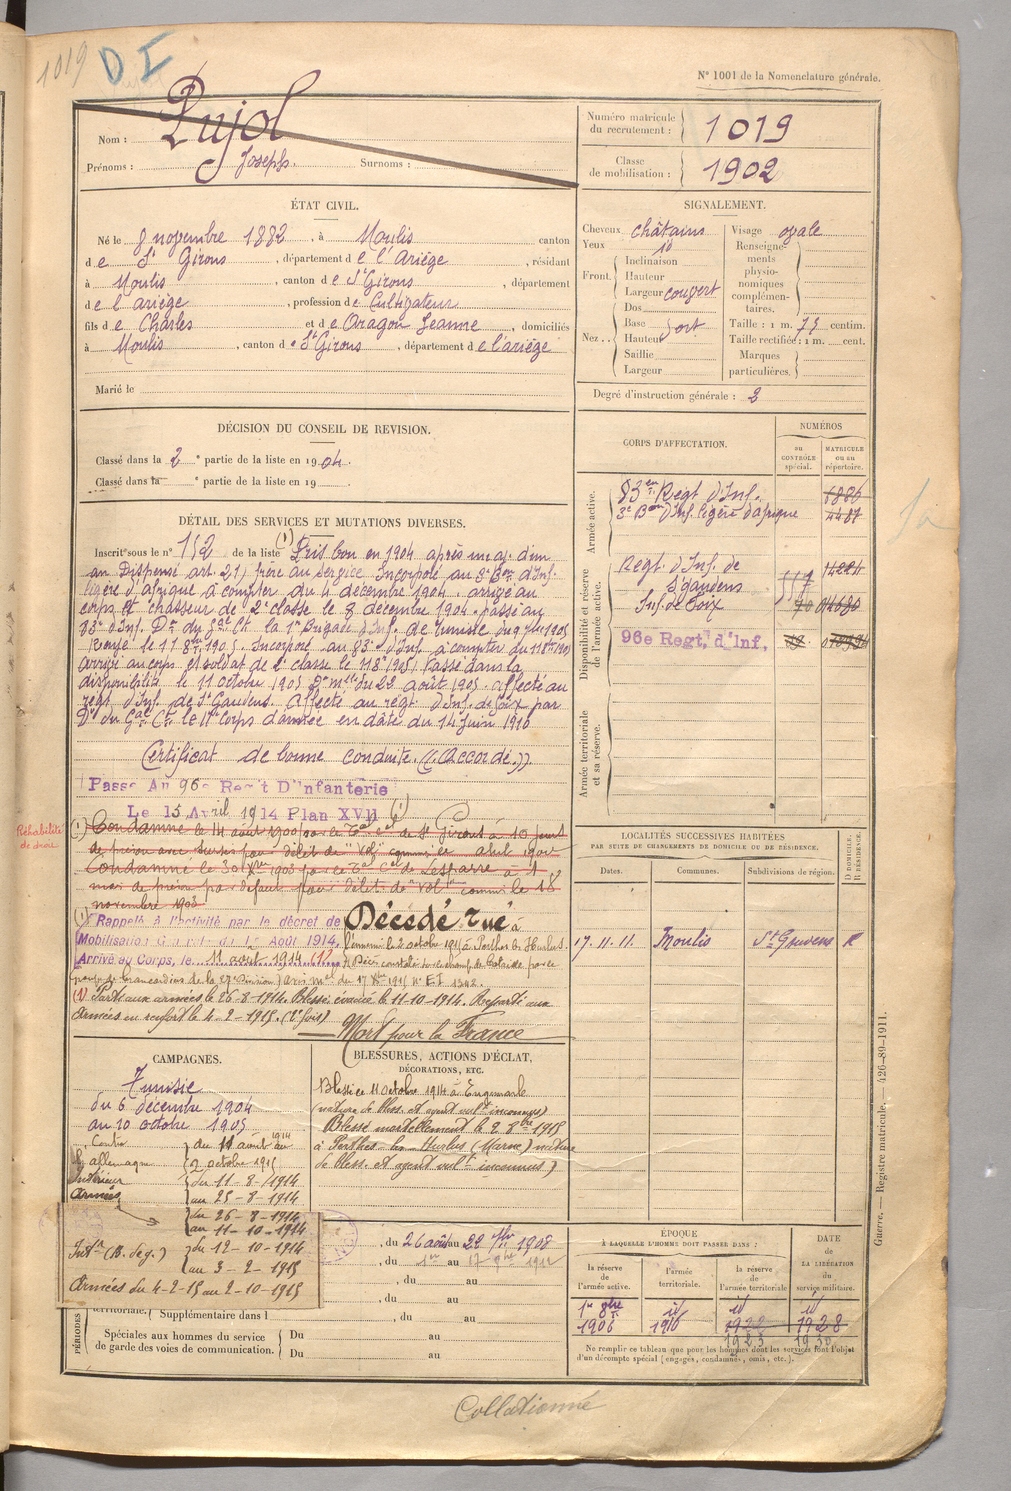 1019 D I
N° 1001 de la Nomenclature générale.
Nom : Pujol
Prénoms : Joseph. Surnoms :
Numéro matricule du recrutement : 1019
Classe de mobilisation : 1902
ÉTAT CIVIL.
Né le 8 novembre 1882, à Moulis canton
de St Girons, département de l'Ariège, résidant
à Moulis, canton de St Girons, département
de l'ariège, profession de Cultivateur
fils de Charles et de Aragon Jeanne, domiciliés
à Moulis, canton de St Girons, département de l'ariège
Marié le
SIGNALEMENT.
Cheveux châtains
Yeux id
Front. Inclinaison
Hauteur
Largeur couvert
Nez . . Dos
Base fort
Hauteur
Saillie
Largeur
Visage ovale
Renseignements physionomiques complémentaires.
Taille : 1 m. 75 centim.
Taille rectifiée : 1 m. cent.
Marques particulières.
Degré d'instruction générale : 2
DÉCISION DU CONSEIL DE REVISION.
Classé dans la 2e partie de la liste en 1904.
Classé dans la e partie de la liste en 19
CORPS D'AFFECTATION.
NUMÉROS
au CONTRÔLE spécial.
MATRICULE ou au répertoire.
Armée active.
83e Regt d'Inf.
3e Bon d'Inf. légère d'afrique 4487
Disponibilité et réserve de l'armée active.
Regt d'Inf. de St gaudens
Inf. de Foix
96e Regt. d'Inf.
Armée territoriale et sa réserve.
DÉTAIL DES SERVICES ET MUTATIONS DIVERSES.
Inscrit sous le n° 152 de la liste (1) Pris bon en 1904 après un aj. d'un
an Dispensé art. 21, frère au service Incorporé au 3e Bon d'Inf.
légère d'afrique à compter du 4 décembre 1904. arrivé au
corps et chasseur de 2e classe le 8 décembre 1904. passé au
83e d'Inf. Don du Gal Ct la 1re Brigade d'Inf. de Tunisie du 9 7bre 1905
Rayé le 11 8bre 1905. Incorporé au 83e d'Inf. à compter du 11 8bre 1905
arrivé au corps et soldat de 2e classe le 11 8 1905. Passé dans la
disponibilité le 11 octobre 1905 Don mlle du 22 août 1905. affecté au
régt d'Inf. de St Gaudens. Affecté au régt d'Inf. de Foix par
Don du Gal Ct le 17e Corps d'armée en date du 14 juin 1910
Certificat de bonne conduite. ((Accordé.))
Passé Au 96e Regt D'infanterie
Le 15 Avril 1914 Plan XVII (1)
Réhabilité de droit
(1) Condamné le 14 août 1900 par le Tal cel de St Girons à 10 jours
de prison avec sursis pour délit de "Vol" commis en avril 1900
Condamné le 30 Xbre 1903 par le Tal Cel de Lesparre à 1
mois de prison par défaut pour délit de "vol" commis le 18
novembre 1903
(1) Rappelé à l'activité par le décret de
Mobilisation Générale du 1er Août 1914.
Arrivé au Corps, le 11 août 1914 (1)
Décédé Tué à
l'ennemi le 2 octobre 1915 à Perthes les Hurlus.
(1) Parti aux armées le 26-8-1914. Blessé évacué le 11-10-1914. Reparti aux
Armées en renfort le 4-2-1915. (2e fois)
Mort pour la France
LOCALITÉS SUCCESSIVES HABITÉES
PAR SUITE DE CHANGEMENTS DE DOMICILE OU DE RÉSIDENCE.
Dates. Communes. Subdivisions de région. D DOMICILE. R RÉSIDENCE.
17.11.11. Moulis St Gaudens R
CAMPAGNES.
Tunisie
du 6 décembre 1904
au 10 octobre 1905
Contre l'allemagne du 11 août 1914 au
2 octobre 1915
Intérieur du 11-8-1914
au 25-8-1914
Armées du 26-8-1914
au 11-10-1914
Intr (B. de g.) du 12-10-1914
au 3-2-1915
Armées du 4-2-15 au 2-10-1915
BLESSURES, ACTIONS D'ÉCLAT,
DÉCORATIONS, ETC.
Blessé le 11 octobre 1914 à
(nature de bless. et agent vulnt inconnus)
Blessé mortellement le 2 8bre 1915
à Perthes-les-Hurlus (Marne) nature
de bless. et agent vulnt inconnus)
, du 26 août au 22 7bre 1908
, du 1er au 17 9bre 1912
, du au
, du au
territoriale. Supplémentaire dans l , du au
PÉRIODES
Spéciales aux hommes du service de garde des voies de communication.
Du au
Du au
ÉPOQUE
À LAQUELLE L'HOMME DOIT PASSER DANS :
la réserve de l'armée active. l'armée territoriale. la réserve de l'armée territoriale
DATE DE LA LIBÉRATION du service militaire.
1er 8bre id id id
1906 1916 1922 1928
1923 1930
Ne remplir ce tableau que pour les hommes dont les services font l'objet
d'un décompte spécial (engagés, condamnés, omis, etc.).
Guerre. — Registre matricule. 426-89-1911.
Collationné